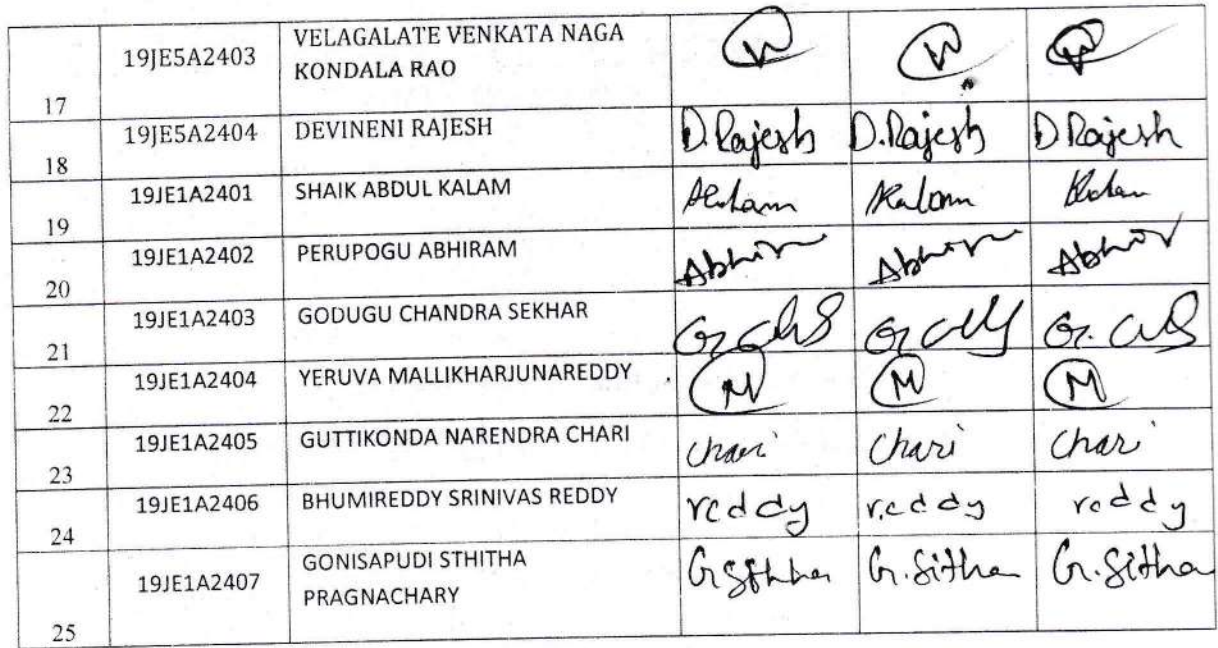 19JE5A2403 VELAGALATE VENKATA NAGA
KONDALA RAO
17
19JE5A2404 DEVINENI RAJESH D.Rajesh D.Rajesh D Rajesh
18
19JE1A2401 SHAIK ABDUL KALAM Kalam
19
19JE1A2402 PERUPOGU ABHIRAM
20
19JE1A2403 GODUGU CHANDRA SEKHAR
21
19JE1A2404 YERUVA MALLIKHARJUNAREDDY M M M
22
19JE1A2405 GUTTIKONDA NARENDRA CHARI Chari Chari Chari
23
19JE1A2406 BHUMIREDDY SRINIVAS REDDY reddy reddy reddy
24
19JE1A2407 GONISAPUDI STHITHA
PRAGNACHARY G.Sitha G.Sitha
25